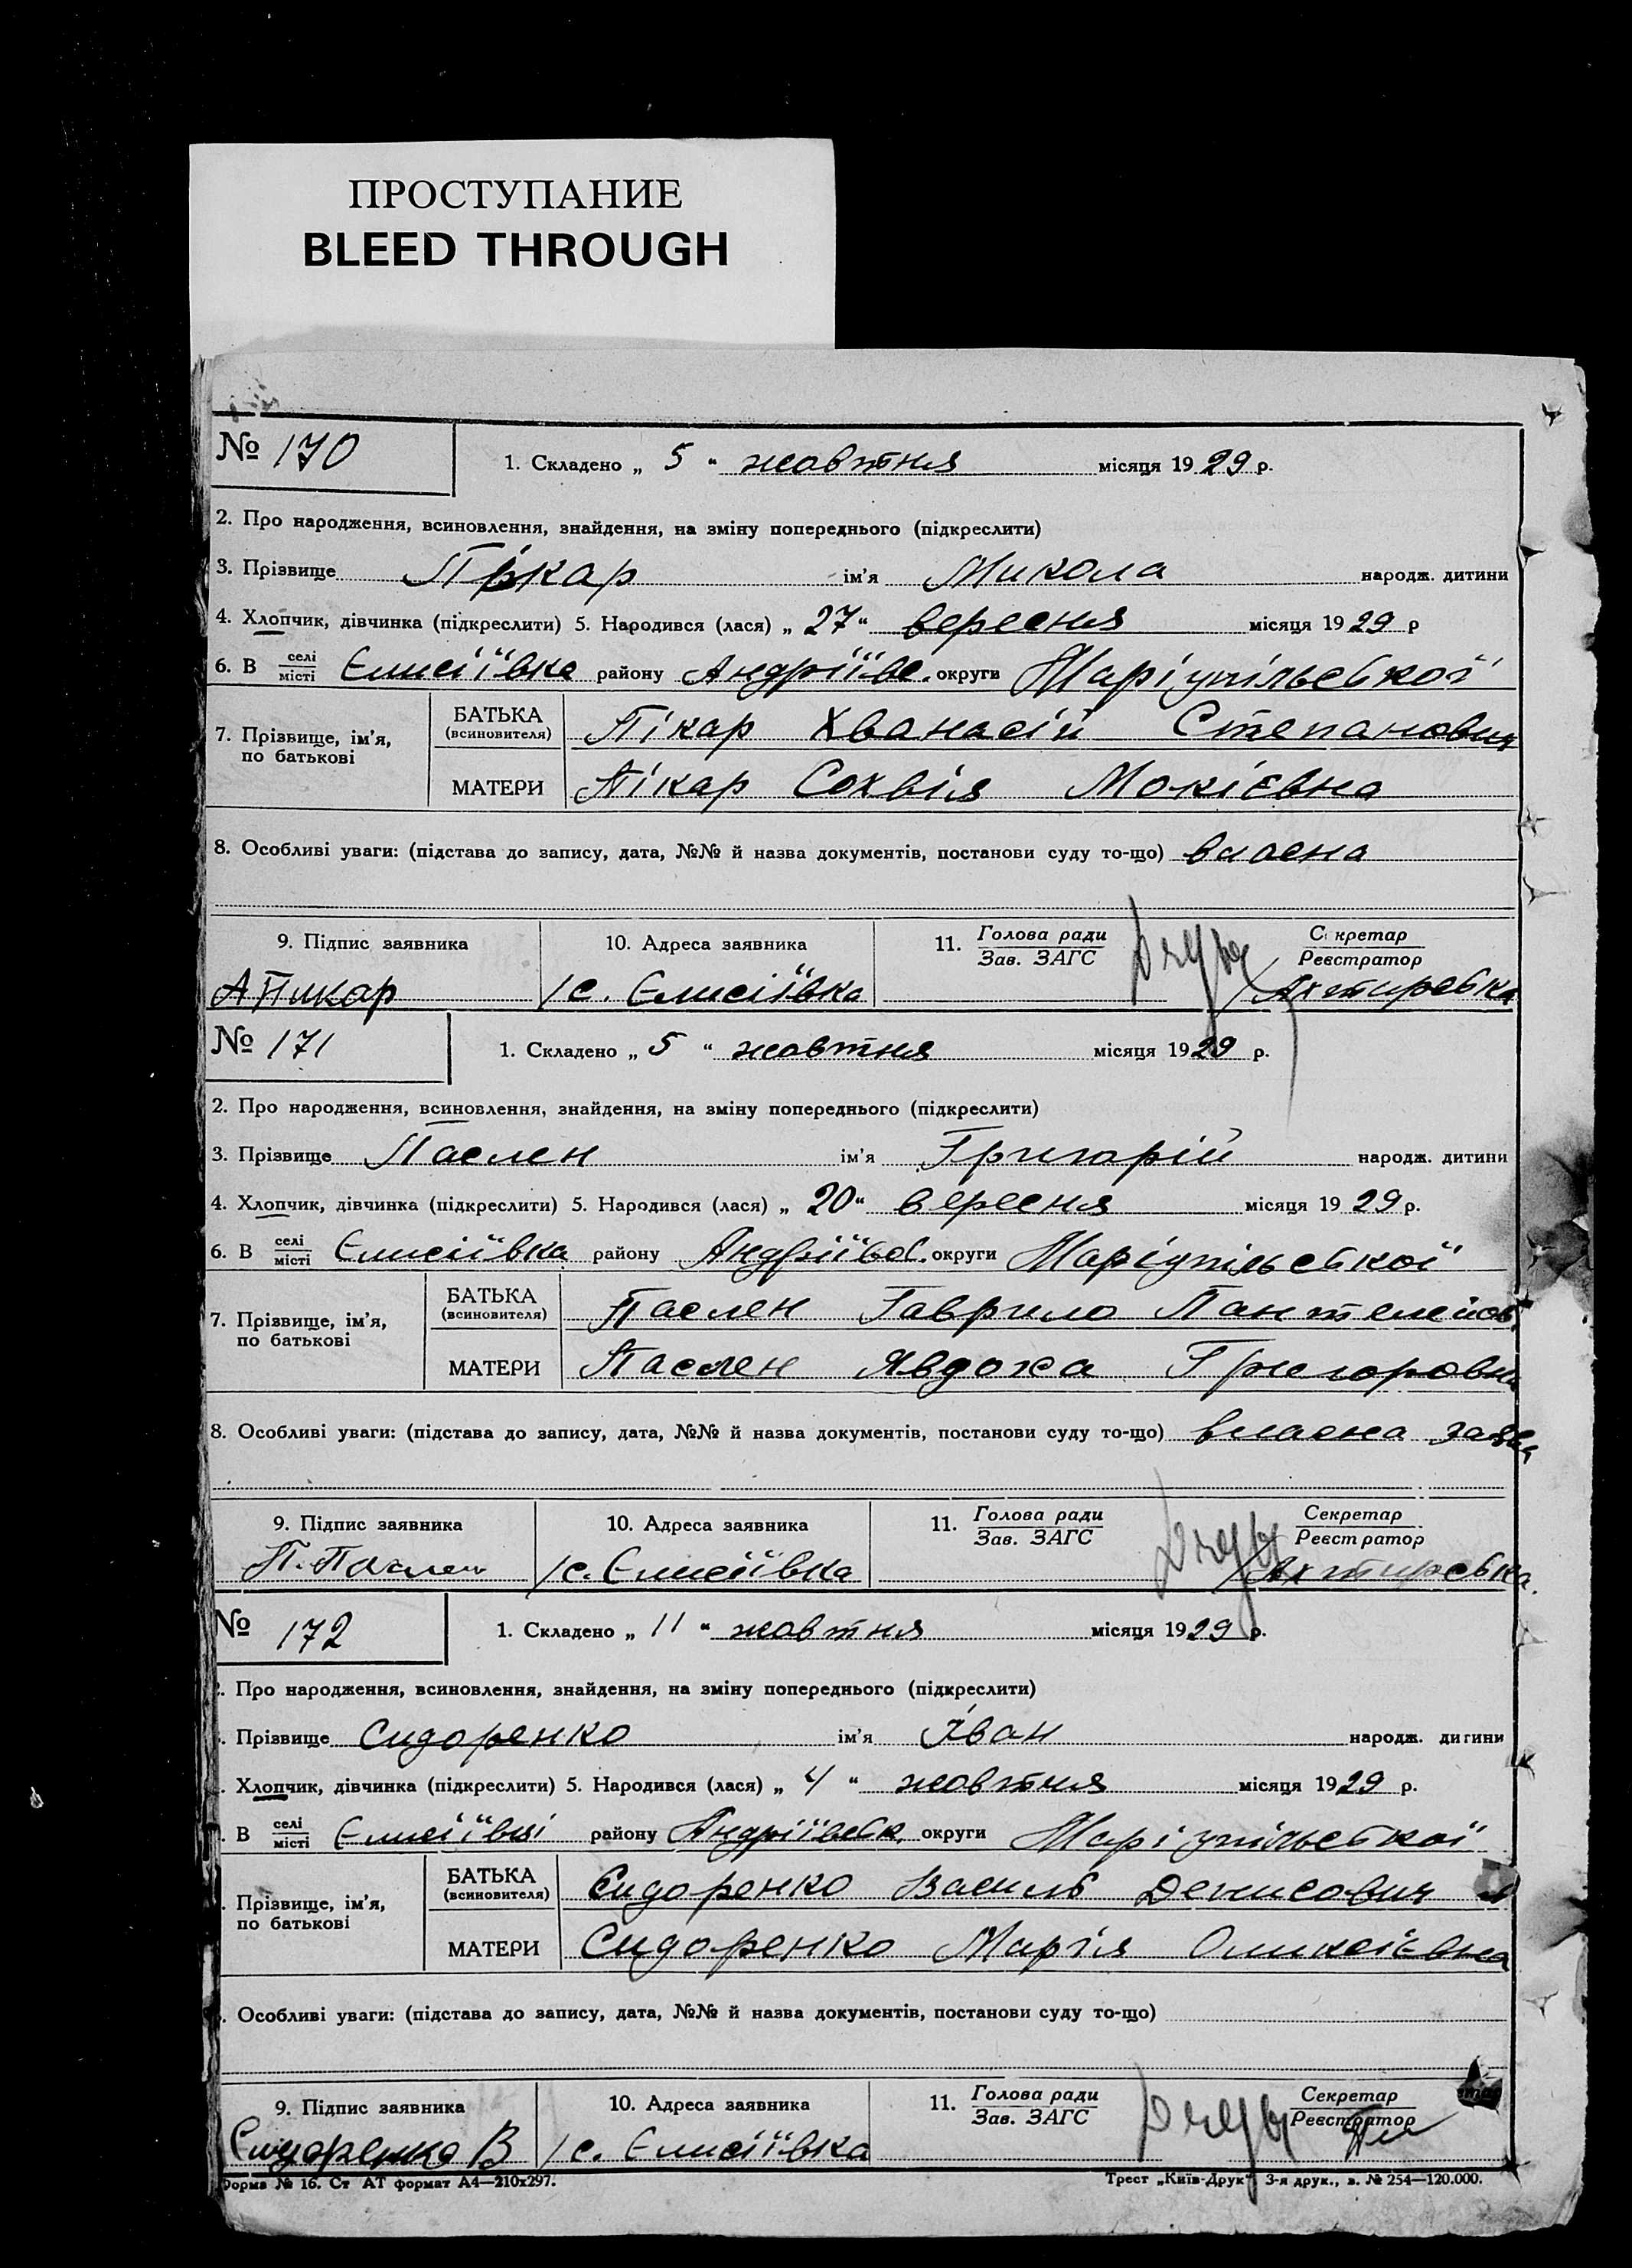 ПРОСТУПАНИЕ
BLEED THROUGH
№ 170 1. Складено „ 5 “ жовтня місяця 1929 р.
2. Про народження, всиновлення, знайдення, на зміну попереднього (підкреслити)
3. Прізвище Пікар ім'я Микола народж. дитини
4. Хлопчик, дівчинка (підкреслити) 5. Народився (лася) „ 27 “ вересня місяця 1929 р
6. В селі/місті Єлисіївка району Андріївс. округи Маріупільської
7. Прізвище, ім'я, по батькові БАТЬКА (всиновителя) Пікар Хванасій Степанович
МАТЕРИ Пікар Сохвія Мокієвна
8. Особливі уваги: (підстава до запису, дата, №№ й назва документів, постанови суду то-що) власна
9. Підпис заявника 10. Адреса заявника 11. Голова ради/Зав. ЗАГС Секретар/Реєстратор
А Пикар / с. Єлисіївка Ахтирська
№ 171 1. Складено „ 5 “ жовтня місяця 1929 р.
2. Про народження, всиновлення, знайдення, на зміну попереднього (підкреслити)
3. Прізвище Паслен ім'я Григорій народж. дитини
4. Хлопчик, дівчинка (підкреслити) 5. Народився (лася) „ 20 “ вересня місяця 1929 р.
6. В селі/місті Єлисіївка району Андріївс. округи Маріупільської
7. Прізвище, ім'я, по батькові БАТЬКА (всиновителя) Паслен Гаврило Пантелейов.
МАТЕРИ Паслен Явдоха Григоровна
8. Особливі уваги: (підстава до запису, дата, №№ й назва документів, постанови суду то-що) власна заява
9. Підпис заявника 10. Адреса заявника 11. Голова ради/Зав. ЗАГС Секретар/Реєстратор
П. Паслен / с. Єлисіївка Ахтирська.
№ 172 1. Складено „ 11 “ жовтня місяця 1929 р.
. Про народження, всиновлення, знайдення, на зміну попереднього (підкреслити)
. Прізвище Сидоренко ім'я Іван народж. дитини
. Хлопчик, дівчинка (підкреслити) 5. Народився (лася) „ 4 “ жовтня місяця 1929 р.
. В селі/місті Єлисіївці району Андріївськ. округи Маріупільської
. Прізвище, ім'я, по батькові БАТЬКА (всиновителя) Сидоренко Василь Денисович
МАТЕРИ Сидоренко Марія Оликсієвна
. Особливі уваги: (підстава до запису, дата, №№ й назва документів, постанови суду то-що)
9. Підпис заявника 10. Адреса заявника 11. Голова ради/Зав. ЗАГС Секретар/Реєстратор
Сидоренко В / с. Єлисіївка
Форма № 16. Ст АТ формат А4—210х297. Трест „Київ-Друк“ 3-я друк., з. № 254—120.000.